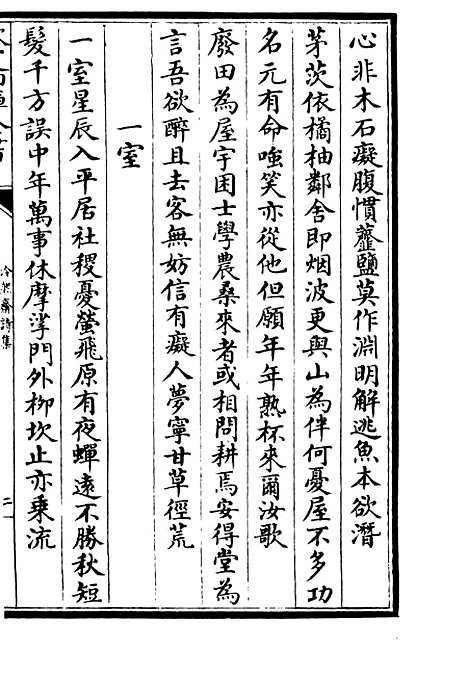 心非木石癡腹慣虀鹽莫作淵明解逃魚本欲潛
茅茨依橘柚鄰舍即烟波更與山為伴何憂屋不多功
名元有命嗤笑亦從他但願年年熟杯來爾汝歌
廢田為屋宇困士學農桑來者或相問耕焉安得堂為
言吾欲醉且去客無妨信有癡人夢寧甘草徑荒
一室
一室星辰入平居社稷憂螢飛原有夜蟬遠不勝秋短
髮千方誤中年萬事休摩挲門外柳坎止亦乗流
冷然齋詩集